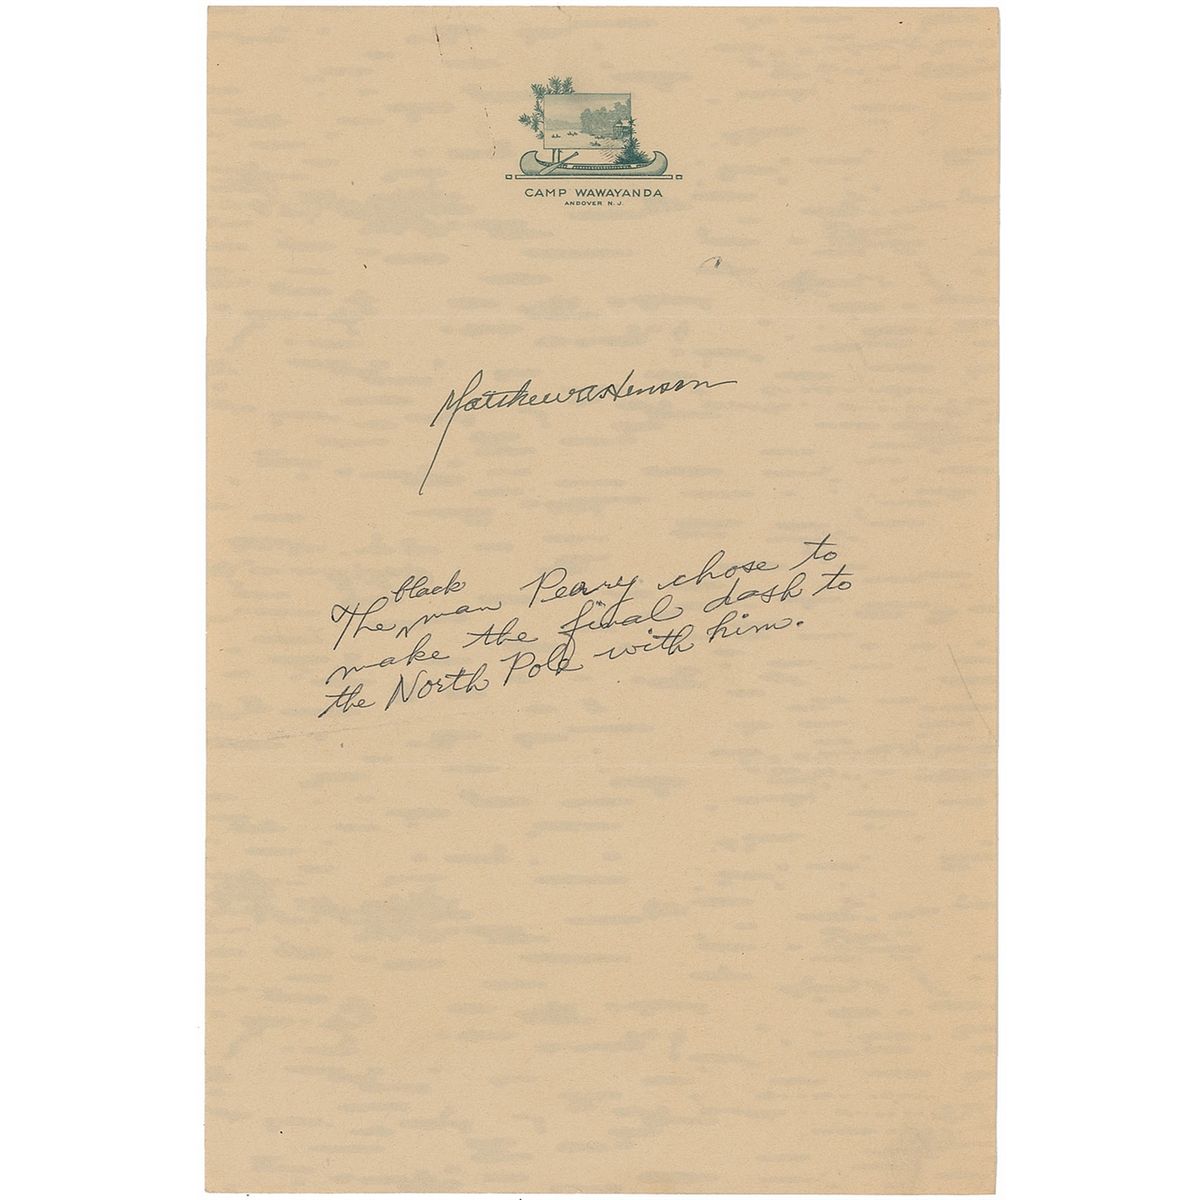 CAMP WAWAYANDA
ANDOVER N. J.
Matthew A Henson
The black man Peary chose to
make the final dash to
the North Pole with him.